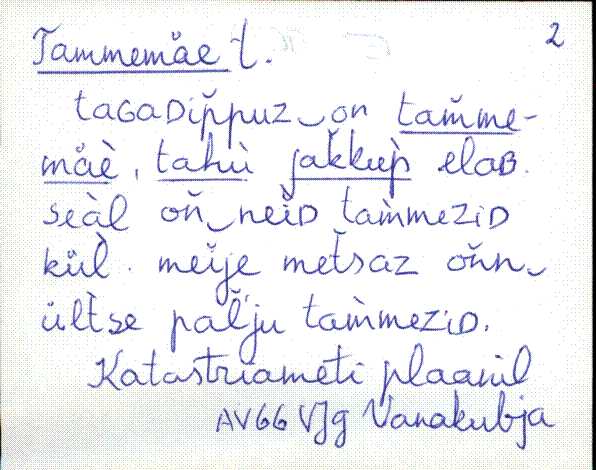 Tammemäe t. 2
taGaDiň̀puz‿on tam̆me-
mäè, tahù jak̆kup̀ elaB.
seàl oň‿neiD tam̀meziD
kül̀. meĭje met̆saz oňn‿
ült̀se pal̆'ju tam̀meziD.
Katastriameti plaanil
AV66 VJg Vanakubja